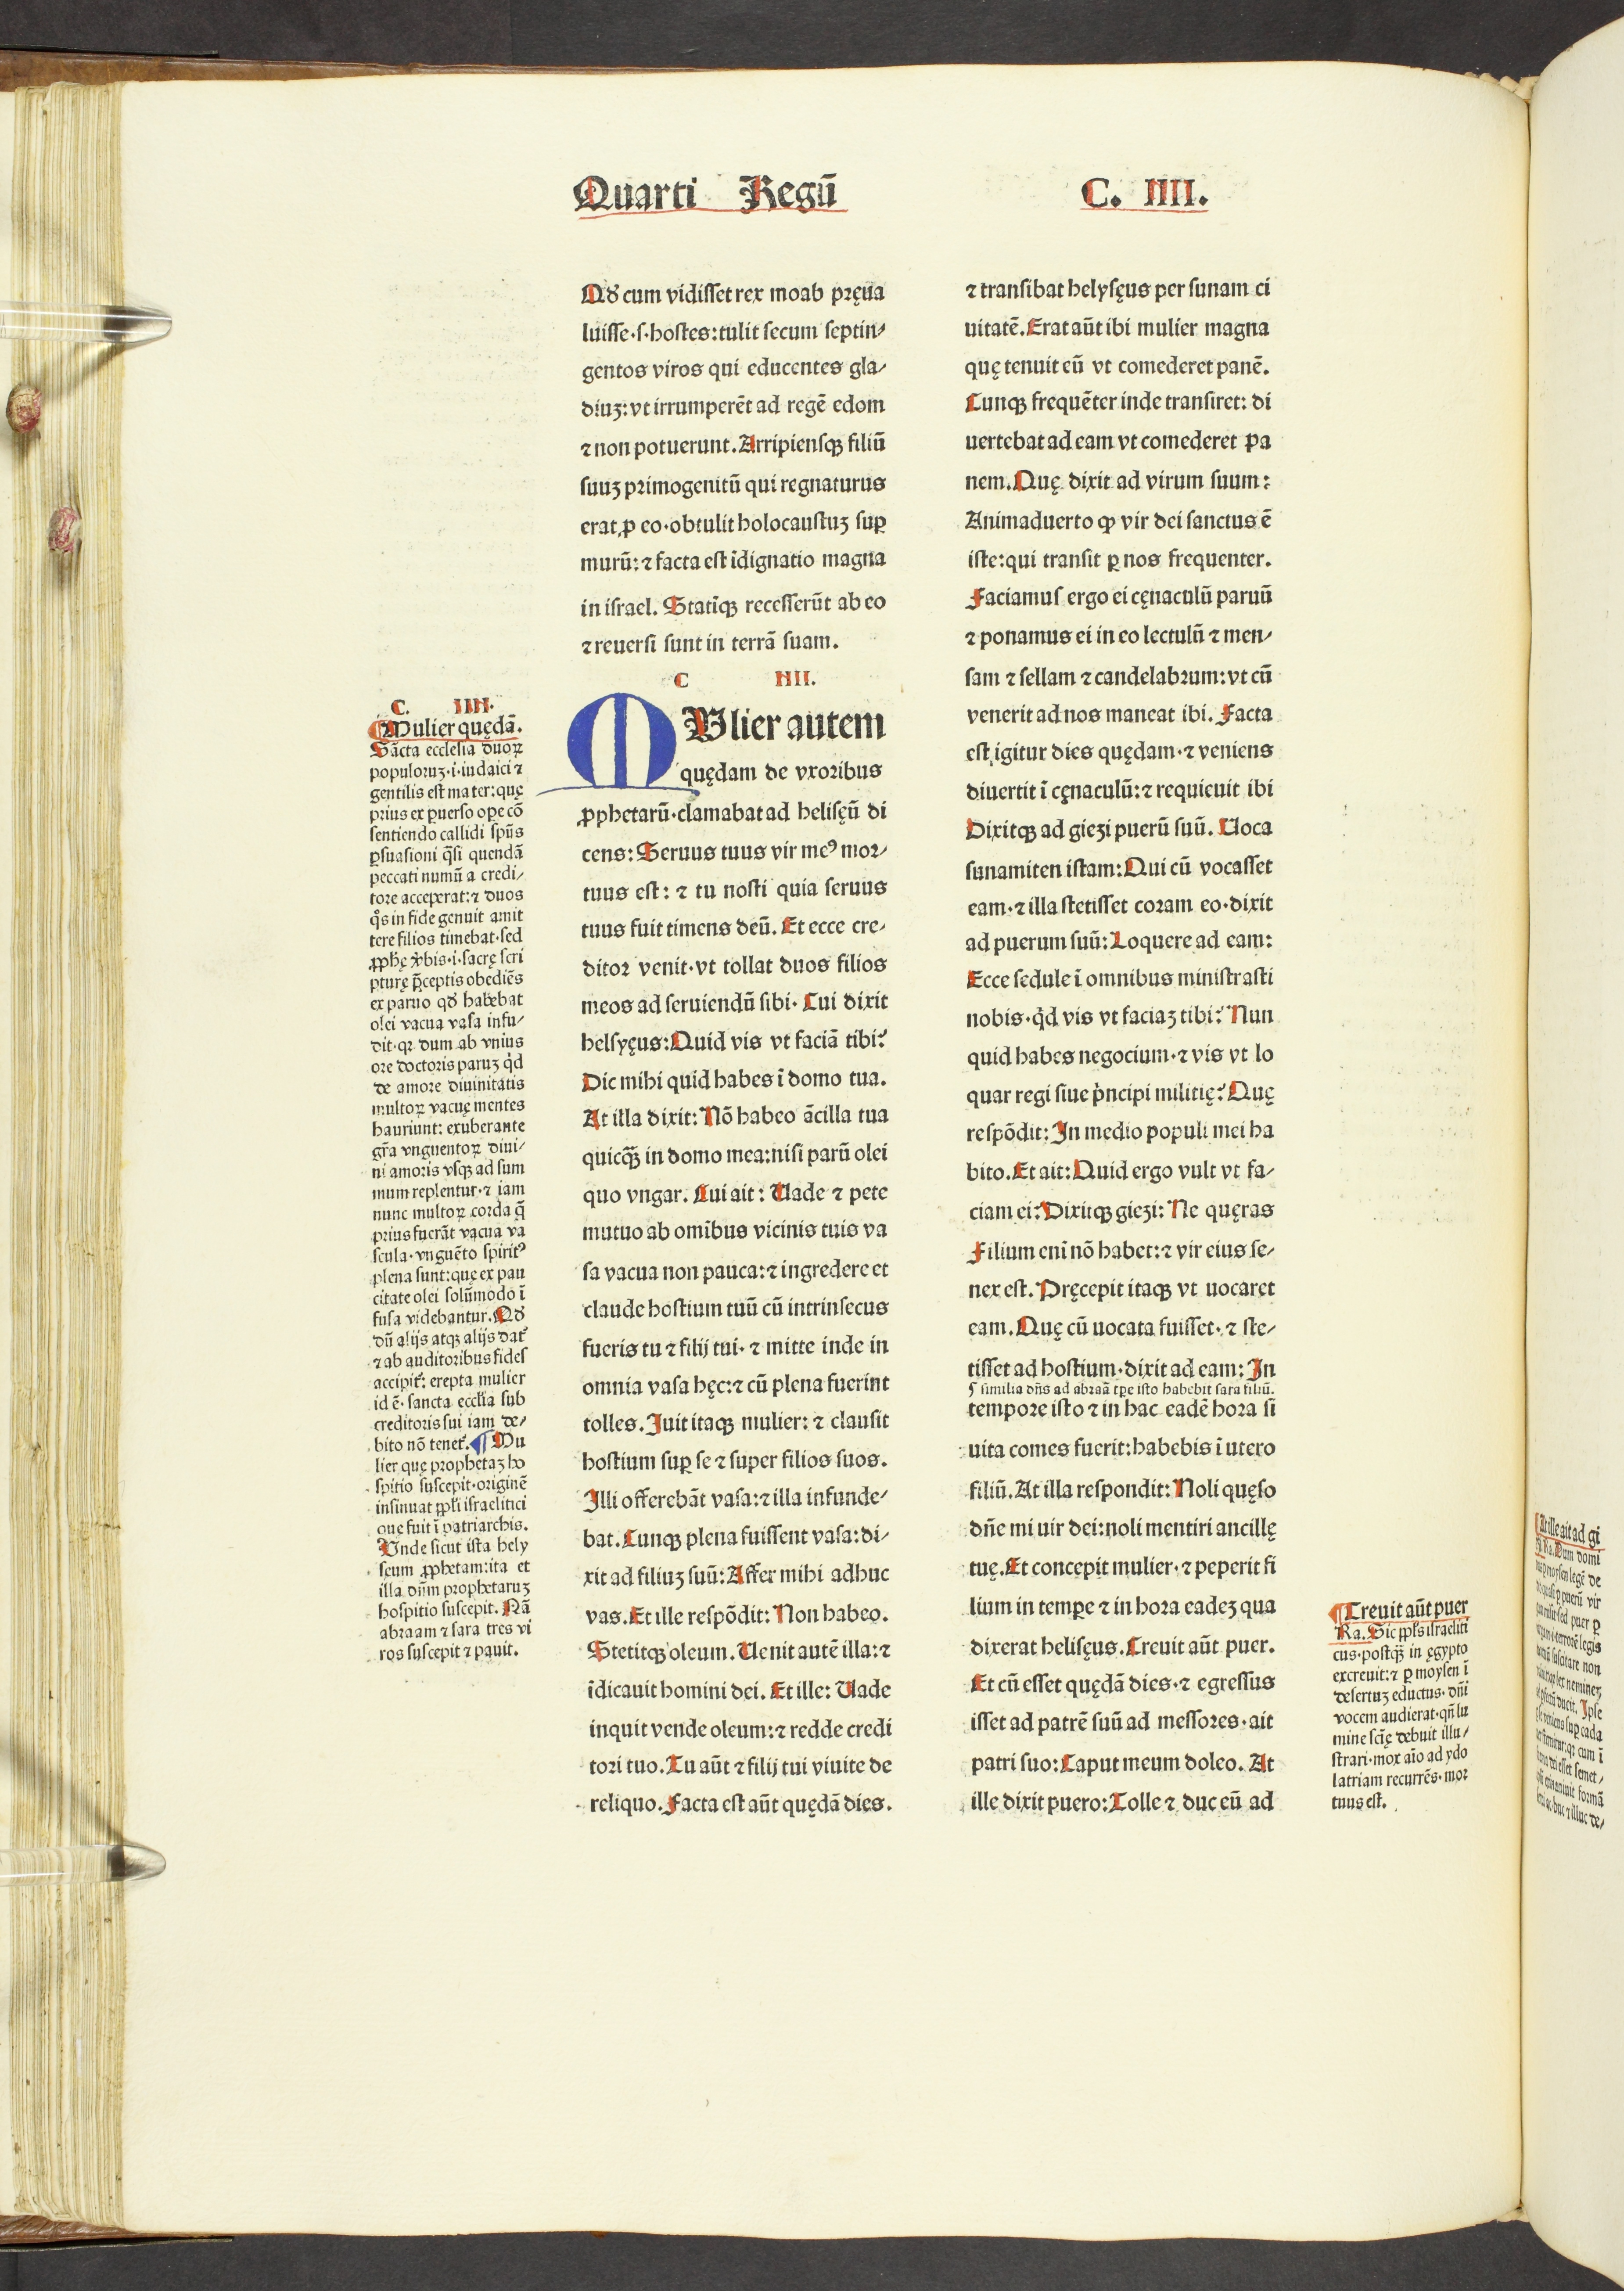 Quarti Regū
C. IIII.
Qđ cum vidisset rex moab pręua
luisse·s·hostes:tulit secum septin⸗
gentos viros qui educentes gla⸗
diuꝫ:vt irrumperēt ad regē edom
⁊ non potuerunt. Arripiensqꝫ filiū
suuꝫ primogenitū qui regnaturus
erat ꝓ eo·obtulit holocaustuꝫ suꝑ
murū:⁊ facta est īdignatio magna
in israel. Statīqꝫ recesserūt ab eo
⁊ reuersi sunt in terrā suam.
C IIII.
MVlier autem
quędam de vxoribus
ꝓphetarū·clamabat ad helisęū di
cens: Seruus tuus vir meꝰ mor⸗
tuus est: ⁊ tu nosti quia seruus
tuus fuit timens deū. Et ecce cre⸗
ditor venit·vt tollat duos filios
meos ad seruiendū sibi. Cui dixit
helsyęus:Quid vis vt faciā tibi?
Dic mihi quid habes ī domo tua.
At illa dixit: Nō habeo ācilla tua
quicqꝫ̄ in domo mea:nisi parū olei
quo vngar. Cui ait: Uade ⁊ pete
mutuo ab omībus vicinis tuis va
sa vacua non pauca:⁊ ingredere et
claude hostium tuū cū intrinsecus
fueris tu ⁊ filij tui·⁊ mitte inde in
omnia vasa hęc:⁊ cū plena fuerint
tolles. Iuit itaqꝫ mulier: ⁊ clausit
hostium suꝑ se ⁊ super filios suos.
Illi offerebāt vasa:⁊ illa infunde⸗
bat. Cunqꝫ plena fuissent vasa:di⸗
xit ad filiuꝫ suū: Affer mihi adhuc
vas. Et ille respōdit: Non habeo.
Stetitqꝫ oleum. Uenit autē illa:⁊
īdicauit homini dei. Et ille: Uade
inquit vende oleum:⁊ redde credi
tori tuo. Tu aūt ⁊ filij tui viuite de
reliquo. Facta est aūt quędā dies.
⁊ transibat helysęus per sunam ci
uitatē. Erat aūt ibi mulier magna
quę tenuit eū vt comederet panē.
Cunqꝫ frequēter inde transiret: di
uertebat ad eam vt comederet pa
nem. Quę dixit ad virum suum:
Animaduerto ꝙ vir dei sanctus ē
iste:qui transit ꝑ nos frequenter.
Faciamus ergo ei cęnaculū paruū
⁊ ponamus ei in eo lectulū ⁊ men⸗
sam ⁊ sellam ⁊ candelabrum:vt cū
venerit ad nos maneat ibi. Facta
est igitur dies quędam·⁊ veniens
diuertit ī cęnaculū:⁊ requieuit ibi
Dixitqꝫ ad giezi puerū suū. Uoca
sunamiten istam: Qui cū vocasset
eam·⁊ illa stetisset coram eo·dixit
ad puerum suū: Loquere ad eam:
Ecce sedule ī omnibus ministrasti
nobis·qͥd vis vt faciaꝫ tibi? Nun
quid habes negocium·⁊ vis vt lo
quar regi siue pͥncipi militię? Quę
respōdit: In medio populi mei ha
bito. Et ait: Quid ergo vult vt fa⸗
ciam ei? Dixitqꝫ giezi: Ne quęras
Filium enī nō habet:⁊ vir eius se⸗
nex est. Pręcepit itaqꝫ vt uocaret
eam. Quę cū uocata fuisset·⁊ ste⸗
tisset ad hostium·dixit ad eam: In
¶ similia dn̄s ad abraā tꝑe isto habebit sara filiū.
tempore isto ⁊ in hac eadē hora si
uita comes fuerit:habebis ī utero
filiū. At illa respondit: Noli quęso
dn̄e mi uir dei:noli mentiri ancillę
tuę. Et concepit mulier·⁊ peperit fi
lium in tempe ⁊ in hora eadeꝫ qua
dixerat helisęus. Creuit aūt puer.
Et cū esset quędā dies·⁊ egressus
isset ad patrē suū ad messores·ait
patri suo: Caput meum doleo. At
ille dixit puero: Tolle ⁊ duc eū ad
C. IIII.
¶Mulier quędā.
Sācta ecclesia duoꝝ
populoruꝫ·i·iudaici ⁊
gentilis est mater:quę
prius ex ꝑuerso oꝑe cō
sentiendo callidi spūs
ꝑsuasioni qͣsi quendā
peccati numū a credi⸗
tore acceperat:⁊ duos
qͦs in fide genuit amit
tere filios timebat·sed
ꝓphę v̓bis·i·sacrę scri
pturę p̄ceptis obediēs
ex paruo qđ habebat
olei vacua vasa infu⸗
dit·qꝛ dum ab vnius
ore doctoris paruꝫ qͥd
de amore diuinitatis
multoꝝ vacuę mentes
hauriunt: exuberante
gr̄a vnguentoꝝ diui⸗
ni amoris vsqꝫ ad sum
mum replentur·⁊ iam
nunc multoꝝ corda q̄
prius fuerāt vacua va
scula·vnguēto spiritꝰ
plena sunt:quę ex pau
citate olei solūmodo ī
fusa videbantur. Qđ
dū alijs atqꝫ alijs dat̓
⁊ ab auditoribus fides
accipit̓: erepta mulier
id ē·sancta eccl̄ia sub
creditoris sui iam de⸗
bito nō tenet̓. ¶ Mu
lier quę prophetaꝫ ho
spitio suscepit·originē
insinuat ppl̓i israelitici
que fuit ī patriarchis.
Vnde sicut ista hely
seum ꝓphetam:ita et
illa dn̄m prophetaruꝫ
hospitio suscepit. Nā
abraam ⁊ sara tres vi
ros suscepit ⁊ pauit.
¶Creuit aūt puer
Ra. Sic ppl̓s israeliti
cus·postqꝫ̄ in ęgypto
excreuit:⁊ ꝑ moysen ī
desertuꝫ eductus·dn̄i
vocem audierat·qn̄ lu
mine scīę debuit illu⸗
strari·mox aīo ad ydo
latriam recurrēs·mor
tuus est.
¶At ille ait ad gi